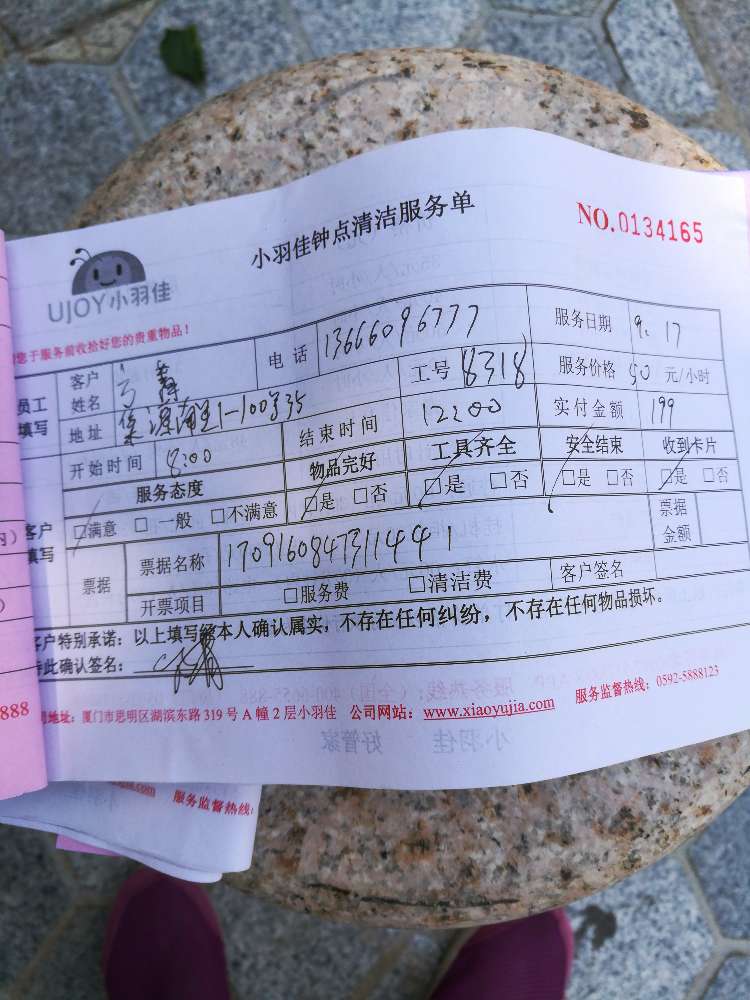 小羽佳钟点清洁服务单
NO.0134165
UJOY小羽佳
您于服务前收拾好您的贵重物品!
员工填写
客户姓名
电话 13666096777
服务日期 9.17
地址 1-100号35
工号 8318
服务价格 50 元/小时
开始时间 8:00
结束时间 12:00
实付金额 199
客户填写
服务态度 物品完好 工具齐全 安全结束 收到卡片
□满意 □一般 □不满意 □是 □否 □是 □否 □是 □否 □是 □否
票据
票据名称 170916084731144 1
票据金额
开票项目 □服务费 □清洁费
客户签名
客户特别承诺:以上填写经本人确认属实,不存在任何纠纷,不存在任何物品损坏。
特此确认签名:
司地址:厦门市思明区湖滨东路 319 号 A 幢 2 层小羽佳 公司网站:www.xiaoyujia.com 服务监督热线:0592-5888123
888
服务监督热线: